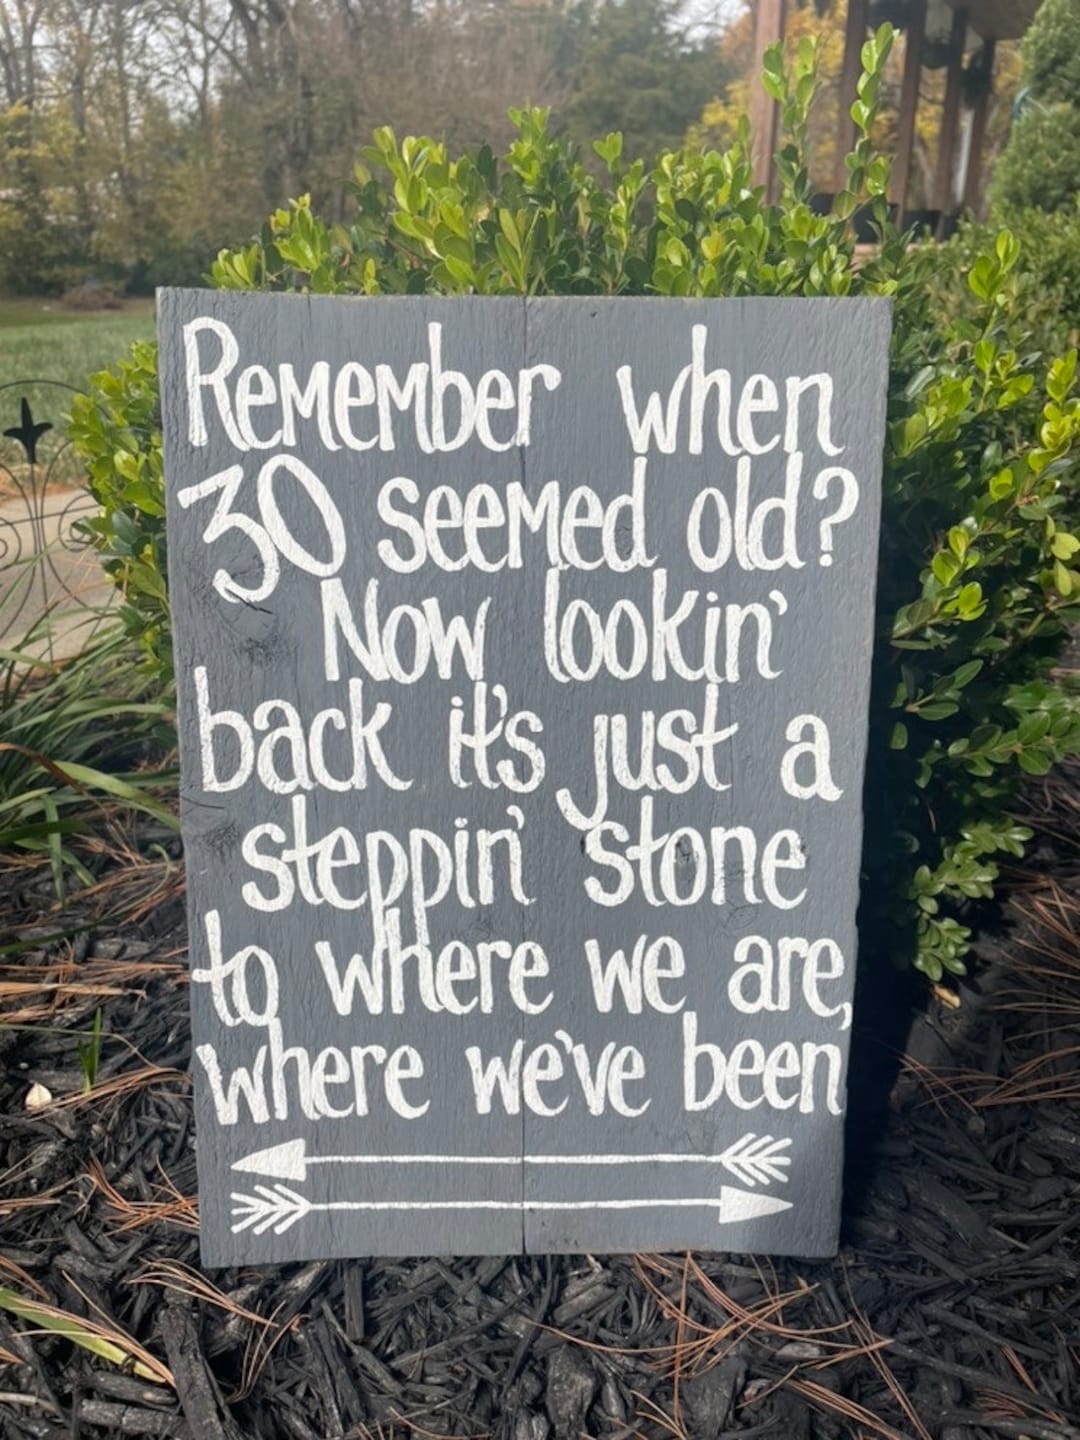 Remember when
30 seemed old?
Now lookin'
back it's just a
steppin' stone
to where we are,
where we've been